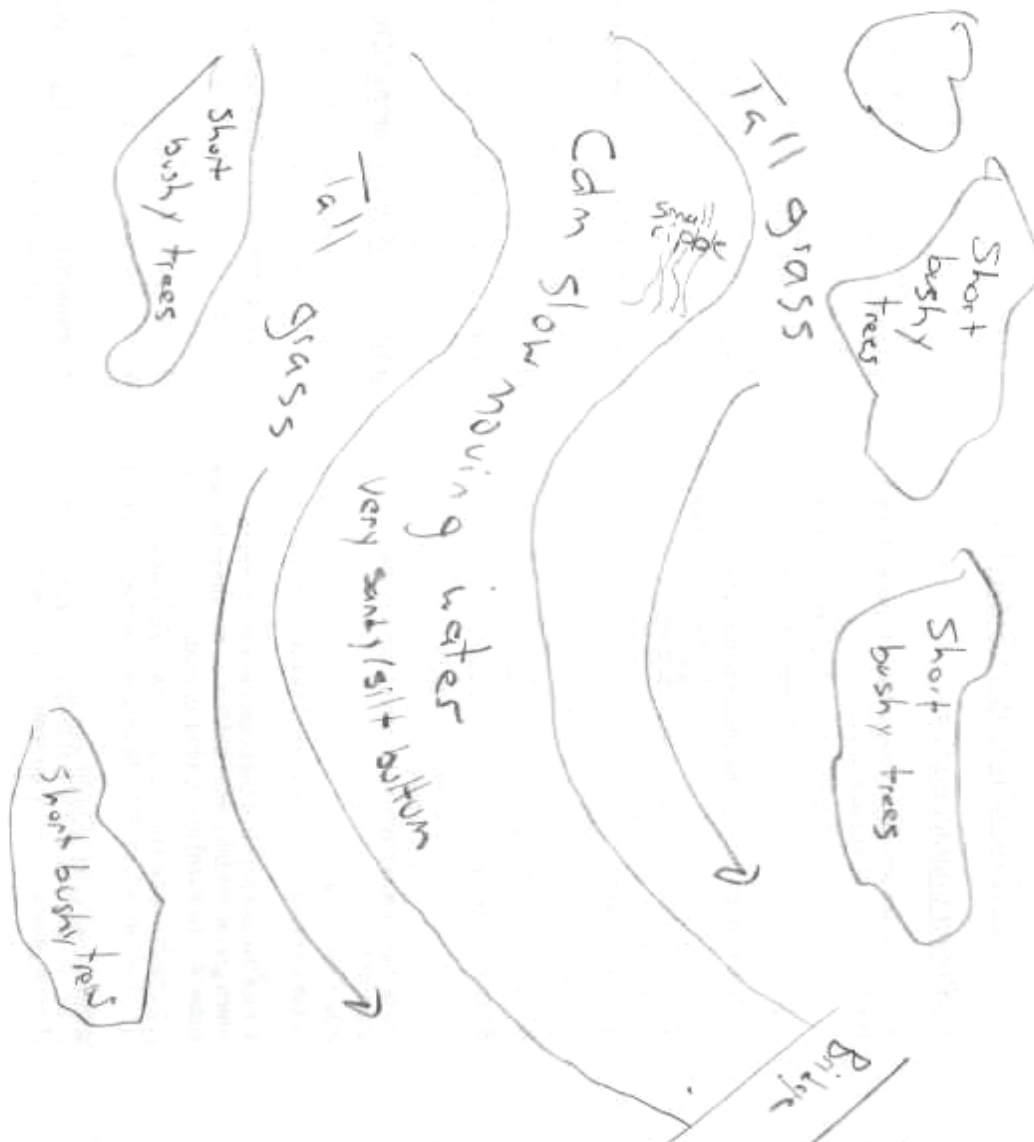 Short
bushy
trees
Short
bushy trees
Tall grass
small
Calm slow moving water
very sandy/silt bottum
Bridge
Tall grass
Short
bushy trees
Short bushy trees